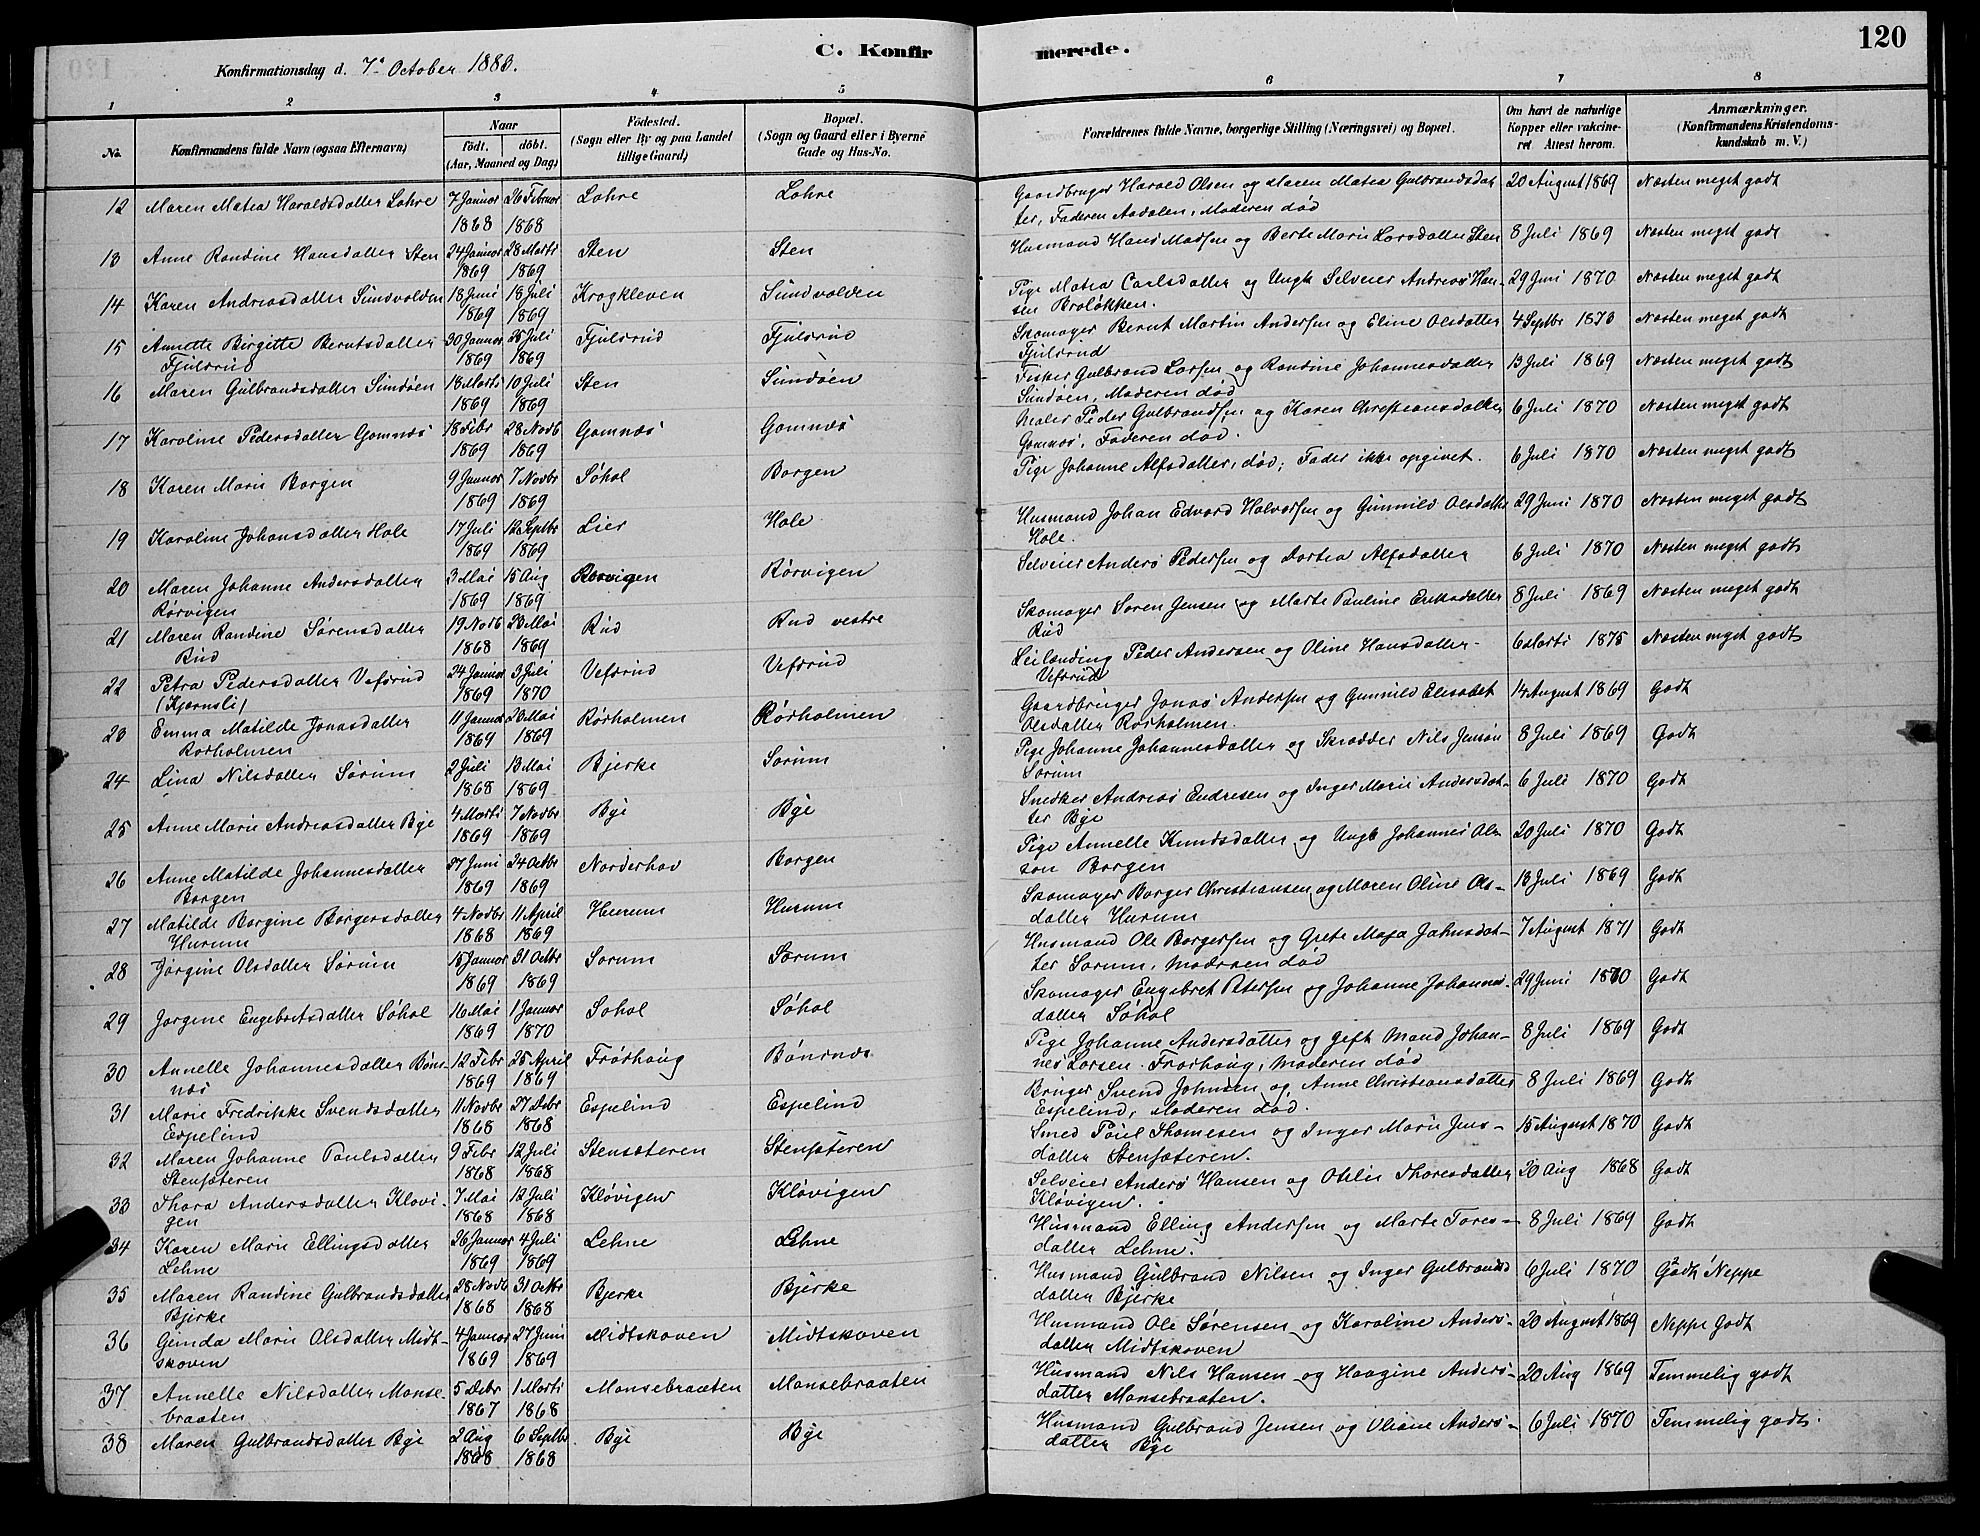 C. Konfir merede. 120
Konfirmationsdag d. 7de October 1883.
1 2 3 4 5 6 7 8
No. Konfirmandens fulde Navn (ogsaa Efternavn) Naar født. døbt. (Aar, Maaned og Dag) Fødested. (Sogn eller By og paa Landet tillige Gaard) Bopæl. (Sogn og Gaard eller i Byerne Gade og Hus-No. Forældrenes fulde Navne, borgerlige Stilling (Næringsvei) og Bopæl. Om havt de naturlige Kopper eller vakcineret Attest herom. Anmærkninger. (Konfirmandens Kristendomskundskab m. V.)
12 Maren Matea Haraldsdatter Lohre 7 Januar 1868 26 Februar 1868 Lohre Lohre Gaardbruger Harald Olsen og Maren Matea Gulbrandsdat
ter, Faderen Aadalen, Moderen død 20 August 1869 Næsten meget godt
13 Anne Randine Hansdatter Sten 24 Januar 1869 28 Marts 1869 Sten Sten Husmand Hans Madsen og Berte Marie Larsdatter Sten 8 Juli 1869 Næsten meget godt
14 Karen Andreasdatter Sundvolden 18 Juni 1869 18 Juli 1869 Krogkleven Sundvolden Pige Matea Carlsdatter og Ungk Selveier Andreas Han-
sen Braløkken. 29 Juni 1870 Næsten meget godt
15 Annette Birgitte Berntsdatter
Fjulsrud 30 Januar 1869 25 Juli 1869 Fjulsrud Fjulsrud Skomager Bernt Martin Andersen og Eline Olsdatter
Fjulsrud 4 Septbr 1873 Næsten meget godt
16 Maren Gulbrandsdatter Sundøen 18 Marts 1869 10 Juli 1869 Sten Sundøen Fisker Gulbrand Larsen og Randine Johannesdatter
Sundøen, Moderen død 13 Juli 1869 Næsten meget godt
17 Karoline Pedersdatter Gomnæs 18 Febr 1869 28 Novb 1869 Gomnæs Gomnæs Maler Peder Gulbrandsen og Karen Christiansdatter
Gomnæs, Faderen død. 6 Juli 1870 Næsten meget godt
18 Karen Marie Borgen 9 Januar 1869 7 Novbr 1869 Søhol Borgen Pige Johanne Alfsdatter, død; Fader ikke opgivet. 6 Juli 1870 Næsten meget godt
19 Karoline Johansdatter Hole 17 Juli 1869 12 Septbr 1869 Lier Hole Husmand Johan Edvard Halvorsen og Gunnild Olsdatter
Hole. 29 Juni 1870 Næsten meget godt
20 Maren Johanne Andersdatter
Rørvigen 3 Mai 1869 15 Aug 1869 Rørvigen Rørvigen Selveier Anders Pedersen og Dortea Alfsdatter 6 Juli 1870 Næsten meget godt
21 Maren Randine Sørensdatter
Rud 19 Novb 1868 20 Mai 1869 Rud Rud vestre Skomager Søren Jensen og Marte Pauline Eriksdatter
Rud 8 Juli 1869 Næsten meget godt
22 Petra Pedersdatter Vefsrud
(Kjærnsli) 24 Januar 1869 3 Juli 1870 Vefsrud Vefsrud Leilænding Peder Andersen og Oline Hansdatter
Vefsrud 6 Marts 1875 Næsten meget godt
23 Emma Matilde Jonasdatter
Rørholmen 11 Januar 1869 20 Mai 1869 Rørholmen Rørholmen Gaardbruger Jonas Andersen og Gunnild Elisabet
Olsdatter Rørholmen. 14 August 1869 Godt
24 Lina Nilsdatter Sørum 2 Juli 1868 13 Mai 1869 Bjerke Sørum Pige Johanne Johannesdatter og Skrædder Nils Jensen
Sørum 8 Juli 1869 Godt
25 Anne Marie Andreasdatter Bye 4 Marts 1869 7 Novbr 1869 Bye Bye Snedker Andreas Endresen og Inger Marie Andersdat-
ter Bye 6 Juli 1870 Godt
26 Anne Matilde Johannesdatter
Borgen 27 Juni 1869 24 Octbr 1869 Norderhov Borgen Pige Annette Knudsdatter og Ungk Johannes Ol
sen Borgen 20 Juli 1870 Godt
27 Matilde Borgine Borgersdatter
Hurum 4 Novbr 1868 11 April 1869 Hurum Hurum Skomager Borger Christiansen og Maren Oline Ols-
datter Hurum 13 Juli 1869 Godt
28 Jørgine Olsdatter Sørum 15 Januar 1869 31 Octbr 1869 Sørum Sørum Husmand Ole Borgersen og Grete Maja Jahnsdat-
ter Sørum, Moderen død 7 August 1871 Godt
29 Jørgine Engebretsdatter Søhol 16 Mai 1869 1 Januar 1870 Søhol Søhol Skomager Engebret Petersen og Johanne Johannes-
datter Søhol 29 Juni 1870 Godt
30 Annette Johannesdatter Bøns-
næs 12 Febr 1869 25 April 1869 Frørhaug Bønsnæs Pige Johanne Andersdatter og Gift Mand Johan-
nes Larsen Frørhaug, Moderen død 8 Juli 1869 Godt
31 Marie Fredrikke Svendsdatter
Espelind 11 Novbr 1868 27 Debr 1868 Espelind Espelind Bruger Svend Johnsen og Anne Christiansdatter
Espelind, Moderen død. 8 Juli 1869 Godt
32 Maren Johanne Paulsdatter
Stensæteren 9 Febr 1868 12 Juli 1868 Stensæteren Stensæteren Smed Paul Thomesen og Inger Marie Jens-
datter Stensæteren. 15 August 1870 Godt
33 Thora Andersdatter Kløvi-
gen 7 Mai 1868 12 Juli 1868 Kløvigen Kløvigen Selveier Anders Hansen og Otilie Thoresdatter
Kløvigen. 30 Aug 1868 Godt
34 Karen Marie Ellingsdatter
Lehne 26 Januar 1869 4 Juli 1869 Lehne Lehne Husmand Elling Andersen og Marte Tores-
datter Lehne. 8 Juli 1869 Godt
35 Maren Randine Gulbrandsdatter
Bjerke 28 Novb 1868 31 Octbr 1868 Bjerke Bjerke Husmand Gulbrand Nilsen og Inger Gulbrands
datter Bjerke 6 Juli 1870 Godt Neppe
36 Gunda Marie Olsdatter Midt-
skoven 4 Januar 1869 27 Juni 1869 Midtskoven Midtskoven Husmand Ole Sørensen og Karoline Anders-
datter Midtskoven 20 August 1869 Neppe godt
37 Annette Nilsdatter Monse-
braaten 5 Debr 1867 1 Marts 1868 Monsebraaten Monsebraaten Husmand Nils Hansen og Haagine Anders-
datter Monsebraaten. 20 Aug 1869 Temmelig godt
38 Maren Gulbrandsdatter Bye 2 Aug 1868 6 Septbr 1868 Bye Bye Husmand Gulbrand Jensen og Oliane Anders-
datter Bye 6 Juli 1870 Temmelig godt.